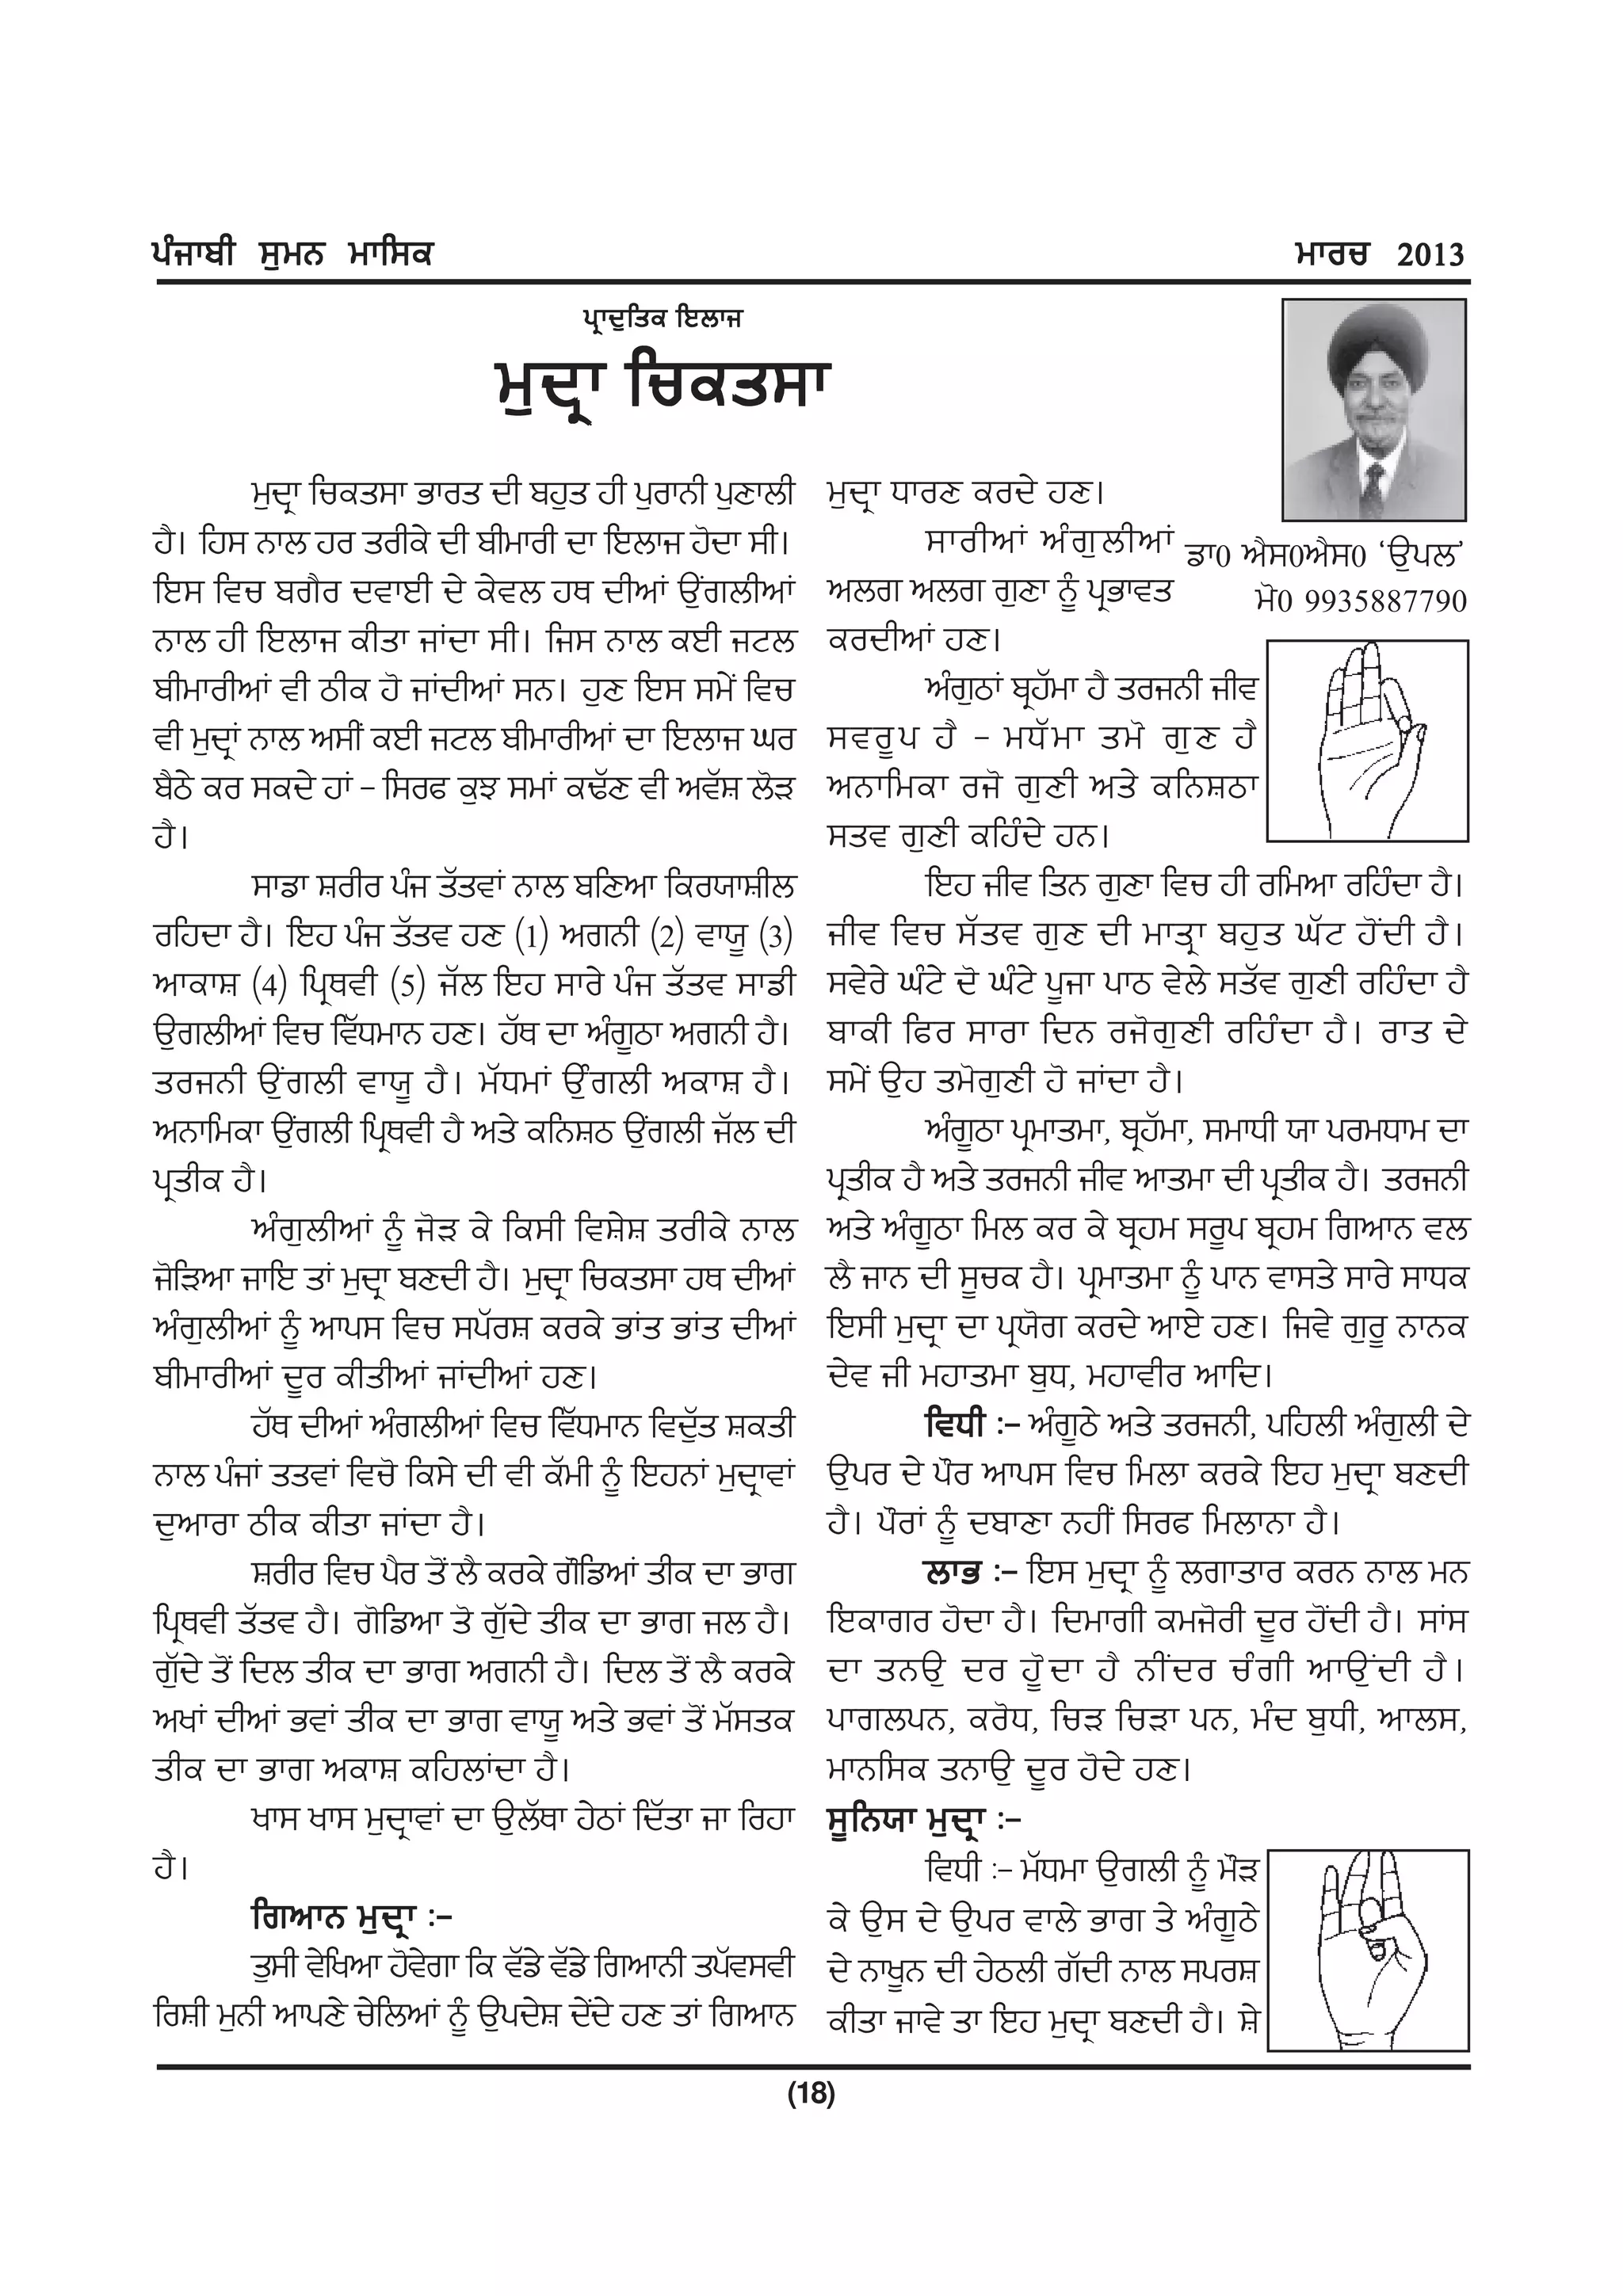 ਪੰਜਾਬੀ ਸੁਮਨ ਮਾਸਿਕ
ਮਾਰਚ 2013
ਪ੍ਰਾਦੁਤਿਕ ਇਲਾਜ
ਮੁਦ੍ਰਾ ਚਿਕਤਸਾ
ਮੁਦ੍ਰਾ ਚਿਕਤਸਾ ਭਾਰਤ ਦੀ ਬਹੁਤ ਹੀ ਪੁਰਾਨੀ ਪੁਣਾਲੀ
ਹੈ। ਹਿਸ ਨਾਲ ਹਰ ਤਰੀਕੇ ਦੀ ਬੀਮਾਰੀ ਦਾ ਇਲਾਜ ਹੋਦਾ ਸੀ।
ਇਸ ਵਿਚ ਬਗੈਰ ਦਵਾਈ ਦੇ ਕੇਵਲ ਹਥ ਦੀਆਂ ਉਂਗਲੀਆਂ
ਨਾਲ ਹੀ ਇਲਾਜ ਕੀਤਾ ਜਾਂਦਾ ਸੀ। ਜਿਸ ਨਾਲ ਕਈ ਜਟਲ
ਬੀਮਾਰੀਆਂ ਵੀ ਠੀਕ ਹੋ ਜਾਂਦੀਆਂ ਸਨ। ਹੁਣ ਇਸ ਸਮੇਂ ਵਿਚ
ਵੀ ਮੁਦ੍ਰਾਂ ਨਾਲ ਅਸੀਂ ਕਈ ਜਟਲ ਬੀਮਾਰੀਆਂ ਦਾ ਇਲਾਜ ਘਰ
ਬੈਠੇ ਕਰ ਸਕਦੇ ਹਾਂ – ਸਿਰਫ ਕੁਝ ਸਮਾਂ ਕਢੱਣ ਵੀ ਅਵੱਸ਼ ਲੋੜ
ਹੈ।
ਸਾਡਾ ਸ਼ਰੀਰ ਪੰਜ ਤੱਤਵਾਂ ਨਾਲ ਬਣਿਆ ਕਿਰਯਾਸ਼ੀਲ
ਰਹਿਦਾ ਹੈ। ਇਹ ਪੰਜ ਤੱਤਵ ਹਣ (1) ਅਗਨੀ (2) ਵਾਯੂ (3)
ਆਕਾਸ਼ (4) ਪ੍ਰਿਥਵੀ (5) ਜੱਲ ਇਹ ਸਾਰੇ ਪੰਜ ਤੱਤਵ ਸਾਡੀ
ਉਗਲੀਆਂ ਵਿਚ ਵਿੱਧਮਾਨ ਹਣ। ਹੱਥ ਦਾ ਅੰਗੂਠਾ ਅਗਨੀ ਹੈ।
ਤਰਜਨੀ ਉਂਗਲੀ ਵਾਯੂ ਹੈ। ਮੱਧਮਾਂ ਉਂਗਲੀ ਅਕਾਸ਼ ਹੈ।
ਅਨਾਮਿਕਾ ਉਂਗਲੀ ਪ੍ਰਿਥਵੀ ਹੈ ਅਤੇ ਕਨਿਸ਼ਠ ਉਂਗਲੀ ਜੱਲ ਦੀ
ਪ੍ਰਤੀਕ ਹੈ।
ਅੰਗੁਲੀਆਂ ਨੂੰ ਜੋੜ ਕੇ ਕਿਸੀ ਵਿਸ਼ੇਸ਼ ਤਰੀਕੇ ਨਾਲ
ਜੋੜਿਆ ਜਾਇ ਤਾਂ ਮੁਦ੍ਰਾ ਬਣਦੀ ਹੈ। ਮੁਦ੍ਰਾ ਚਿਕਤਸਾ ਹਥ ਦੀਆਂ
ਅੰਗੁਲੀਆਂ ਨੂੰ ਆਪਸ ਵਿਚ ਸਪੱਰਸ਼ ਕਰਕੇ ਭਾਂਤ ਭਾਂਤ ਦੀਆਂ
ਬੀਮਾਰੀਆਂ ਦੂਰ ਕੀਤੀਆਂ ਜਾਂਦੀਆਂ ਹਣ।
ਹੱਥ ਦੀਆਂ ਅੰਗਲੀਆਂ ਵਿਚ ਵਿੱਧਮਾਨ ਵਿਦੁੱਤ ਸ਼ਕਤੀ
ਨਾਲ ਪੰਜਾਂ ਤਤਵਾਂ ਵਿਚੋ ਕਿਸੇ ਦੀ ਵੀ ਕੱਮੀ ਨੂੰ ਇਹਨਾਂ ਮੁਦ੍ਰਾਵਾਂ
ਦੁਆਰਾ ਠੀਕ ਕੀਤਾ ਜਾਂਦਾ ਹੈ।
ਸ਼ਰੀਰ ਵਿਚ ਪੈਰ ਤੋਂ ਲੈ ਕਰਕੇ ਗੌਡਿਆਂ ਤੀਕ ਦਾ ਭਾਗ
ਪ੍ਰਿਥਵੀ ਤੱਤਵ ਹੈ। ਗੋਡਿਆ ਤੋ ਗੁੱਦੇ ਤੀਕ ਦਾ ਭਾਗ ਜਲ ਹੈ।
ਗੁੱਦੇ ਤੋਂ ਦਿਲ ਤੀਕ ਦਾ ਭਾਗ ਅਗਨੀ ਹੈ। ਦਿਲ ਤੋਂ ਲੈ ਕਰਕੇ
ਅਖਾਂ ਦੀਆਂ ਭਵਾਂ ਤੀਕ ਦਾ ਭਾਗ ਵਾਯੂ ਅਤੇ ਭਵਾਂ ਤੋਂ ਮੱਸਤਕ
ਤੀਕ ਦਾ ਭਾਗ ਅਕਾਸ਼ ਕਹਿਲਾਂਦਾ ਹੈ।
ਖਾਸ ਖਾਸ ਮੁਦ੍ਰਾਵਾਂ ਦਾ ਉਲੱਥਾ ਹੇਠਾਂ ਦਿੱਤਾ ਜਾ ਰਿਹਾ
ਹੈ।
ਗਿਆਨ ਮੁਦ੍ਰਾ :–
ਤੁਸੀ ਵੇਖਿਆ ਹੋਵੇਗਾ ਕਿ ਵੱਡੇ ਵੱਡੇ ਗਿਆਨੀ ਤਪੱਵਸਵੀ
ਰਿਸ਼ੀ ਮੁਨੀ ਆਪਣੇ ਚੇਲਿਆਂ ਨੂੰ ਉਪਦੇਸ਼ ਦੇਂਦੇ ਹਣ ਤਾਂ ਗਿਆਨ
ਮੁਦ੍ਰਾ ਧਾਰਣ ਕਰਦੇ ਹਣ।
ਸਾਰੀਆਂ ਅੰਗੁਲੀਆਂ
ਅਲਗ ਅਲਗ ਗੁਣਾ ਨੂੰ ਪ੍ਰਭਾਵਤ
ਕਰਦੀਆਂ ਹਣ।
ਡਾ0 ਐਸ0ਐਸ0 ‘ਉਪਲ’
ਮੋ0 9935887790
ਅੰਗੁਠਾਂ ਬ੍ਰਹੱਮਾ ਹੈ ਤਰਜਨੀ ਜੀਵ
ਸਵਰੂਪ ਹੈ – ਮਧੱਮਾ ਤਮੋ ਗੁਣ ਹੈ
ਅਨਾਮਿਕਾ ਰਜੋ ਗੁਣੀ ਅਤੇ ਕਨਿਸ਼ਠਾ
ਸਤਵ ਗੁਣੀ ਕਹਿੰਦੇ ਹਨ।
ਇਹ ਜੀਵ ਤਿਨ ਗੁਣਾ ਵਿਚ ਹੀ ਰਮਿਆ ਰਹਿੰਦਾ ਹੈ।
ਜੀਵ ਵਿਚ ਸੱਤਵ ਗੁਣ ਦੀ ਮਾਤ੍ਰਾ ਬਹੁਤ ਘੱਟ ਹੋਂਦੀ ਹੈ।
ਸਵੇਰੇ ਘੰਟੇ ਦੋ ਘੰਟੇ ਪੂਜਾ ਪਾਠ ਵੇਲੇ ਸਤੱਵ ਗੁਣੀ ਰਹਿੰਦਾ ਹੈ
ਬਾਕੀ ਫਿਰ ਸਾਰਾ ਦਿਨ ਰਜੋਗੁਣੀ ਰਹਿੰਦਾ ਹੈ। ਰਾਤ ਦੇ
ਸਮੇਂ ਉਹ ਤਮੋਗੁਣੀ ਹੋ ਜਾਂਦਾ ਹੈ।
ਅੰਗੂਠਾ ਪ੍ਰਮਾਤਮਾ, ਬ੍ਰਹੱਮਾ, ਸਮਾਧੀ ਯਾ ਪਰਮਧਾਮ ਦਾ
ਪ੍ਰਤੀਕ ਹੈ ਅਤੇ ਤਰਜਨੀ ਜੀਵ ਆਤਮਾ ਦੀ ਪ੍ਰਤੀਕ ਹੈ। ਤਰਜਨੀ
ਅਤੇ ਅੰਗੂਠਾ ਮਿਲ ਕਰ ਕੇ ਬ੍ਰਹਮ ਸਰੂਪ ਬ੍ਰਹਮ ਗਿਆਨ ਵਲ
ਲੈ ਜਾਨ ਦੀ ਸੂਚਕ ਹੈ। ਪ੍ਰਮਾਤਮਾ ਨੂੰ ਪਾਨ ਵਾਸਤੇ ਸਾਰੇ ਸਾਧਕ
ਇਸੀ ਮੁਦ੍ਰਾ ਦਾ ਪ੍ਰਯੋਗ ਕਰਦੇ ਆਏ ਹਣ। ਜਿਵੇ ਗੁਰੂ ਨਾਨਕ
ਦੇਵ ਜੀ ਮਹਾਤਮਾ ਬੁਧ, ਮਹਾਵੀਰ ਆਦਿ।
ਵਿਧੀ :– ਅੰਗੂਠੇ ਅਤੇ ਤਰਜਨੀ, ਪਹਿਲੀ ਅੰਗੁਲੀ ਦੇ
ਉਪਰ ਦੇ ਪੌਰ ਆਪਸ ਵਿਚ ਮਿਲਾ ਕਰਕੇ ਇਹ ਮੁਦ੍ਰਾ ਬਣਦੀ
ਹੈ। ਪੌਰਾਂ ਨੂੰ ਦਬਾਣਾ ਨਹੀਂ ਸਿਰਫ ਮਿਲਾਨਾ ਹੈ।
ਲਾਭ :– ਇਸ ਮੁਦ੍ਰਾ ਨੂੰ ਲਗਾਤਾਰ ਕਰਨ ਨਾਲ ਮਨ
ਇਕਾਗਰ ਹੋਦਾ ਹੈ। ਦਿਮਾਗੀ ਕਮਜੋਰੀ ਦੂਰ ਹੋਂਦੀ ਹੈ। ਸਾਂਸ
ਦਾ ਤਨਉ ਦਰ ਹੂੋਦਾ ਹੈ ਨੀਂਦਰ ਚੰਗੀ ਆਉਂਦੀ ਹੈ।
ਪਾਗਲਪਨ, ਕਰੋਧ, ਚਿੜ ਚਿੜਾ ਪਨ, ਮੰਦ ਬੁਧੀ, ਆਲਸ,
ਮਾਨਸਿਕ ਤਨਾਉ ਦੂਰ ਹੋਦੇ ਹਣ।
ਸੂਨਿਯਾ ਮੁਦ੍ਰਾ :–
ਵਿਧੀ :– ਮੱਧਮਾ ਉਗਲੀ ਨੂੰ ਮੌੜ
ਕੇ ਉਸ ਦੇ ਉਪਰ ਵਾਲੇ ਭਾਗ ਤੇ ਅੰਗੂਠੇ
ਦੇ ਨਾਖੂਨ ਦੀ ਹੇਠਲੀ ਗੱਦੀ ਨਾਲ ਸਪਰਸ਼
ਕੀਤਾ ਜਾਵੇ ਤਾ ਇਹ ਮੁਦ੍ਰਾ ਬਣਦੀ ਹੈ। ਸ਼ੇ
(18)